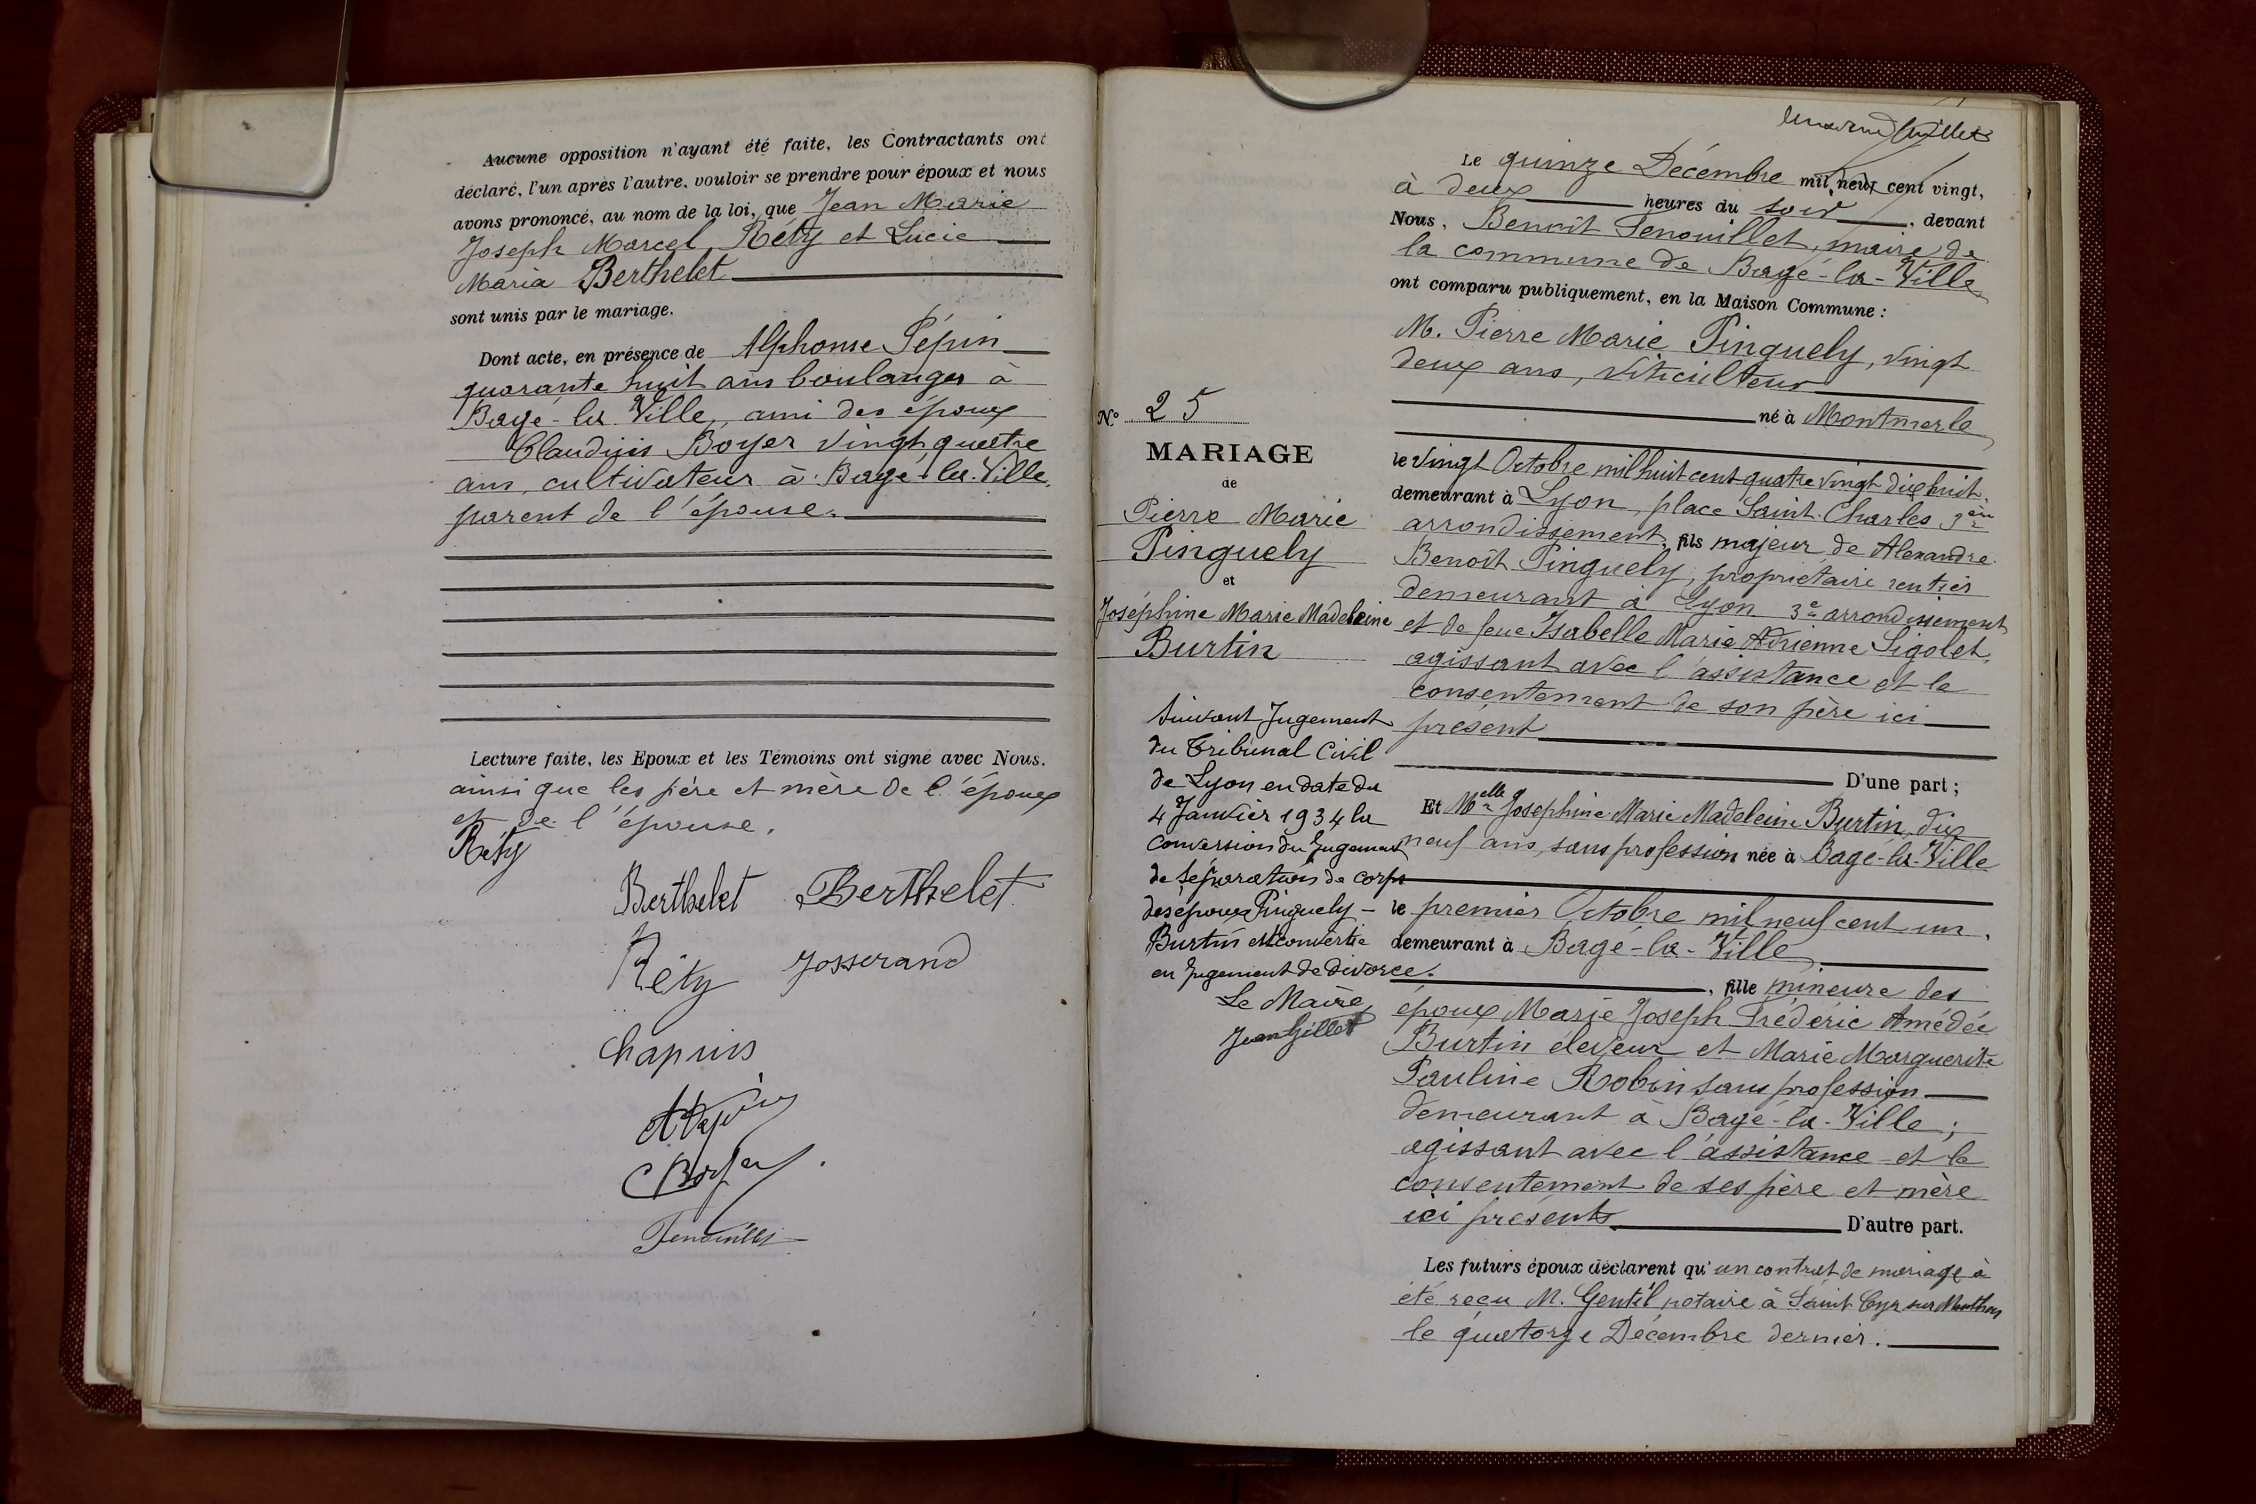 Aucune opposition n'ayant été faite, les Contractants ont
déclaré, l'un après l'autre, vouloir se prendre pour époux et nous
avons prononcé, au nom de la loi, que Jean Marie
Joseph Marcel Réty et Lucie
Maria Berthelet
sont unis par le mariage.
Dont acte, en présence de Alphonse Pépin
quarante huit ans boulanger à
Bagé-la-Ville, ami des époux
Claudius Boyer vingt quatre
ans, cultivateur à Bagé-la-Ville,
parent de l'épouse.
Lecture faite, les Epoux et les Témoins ont signé avec Nous.
ainsi que les père et mère de l'époux
et de l'épouse.
Réty
Berthelet Berthelet
Réty Josserand
Chapuis
A Pépin
C Boyer
Fenouillet
N° 25
MARIAGE
de
Pierre Marie
Pinguely
et
Joséphine Marie Madeleine
Burtin
Suivant Jugement
du Tribunal Civil
de Lyon en date du
4 Janvier 1934 la
conversion du Jugement
de séparation de corps
des époux Pinguely -
Burtin est convertie
en jugement de divorce.
Le Maire
Jean Gillet
feuillet
Le quinze Décembre mil neuf cent vingt,
à deux heures du soir, devant
Nous, Benoît Fenouillet, maire de
la commune de Bagé-la-Ville
ont comparu publiquement, en la Maison Commune :
M. Pierre Marie Pinguely, vingt
deux ans, viticulteur
né à Montmerle
le vingt Octobre mil huit cent quatre vingt dix huit,
demeurant à Lyon, place Saint Charles
arrondissement, fils majeur de Alexandre
Benoît Pinguely, propriétaire rentier
demeurant à Lyon 3e arrondissement
et de feue Isabelle Marie Adrienne Sigolet,
agissant avec l'assistance et le
consentement de son père ici
présent
D'une part ;
Et Melle Josephine Marie Madeleine Burtin, dix
neuf ans, sans profession née à Bagé-la-Ville
le premier Octobre mil neuf cent un,
demeurant à Bagé-la-Ville
, fille mineure des
époux Marie Joseph Frédéric Amédée
Burtin éleveur et Marie Marguerite
Pauline Robin sans profession
demeurant à Bagé-la-Ville ;
agissant avec l'assistance et le
consentement de ses père et mère
ici présents D'autre part.
Les futurs époux déclarent qu'un contrat de mariage a
été reçu M. Gentil notaire à Saint Cyr sur Menthon
le quatorze Décembre dernier.